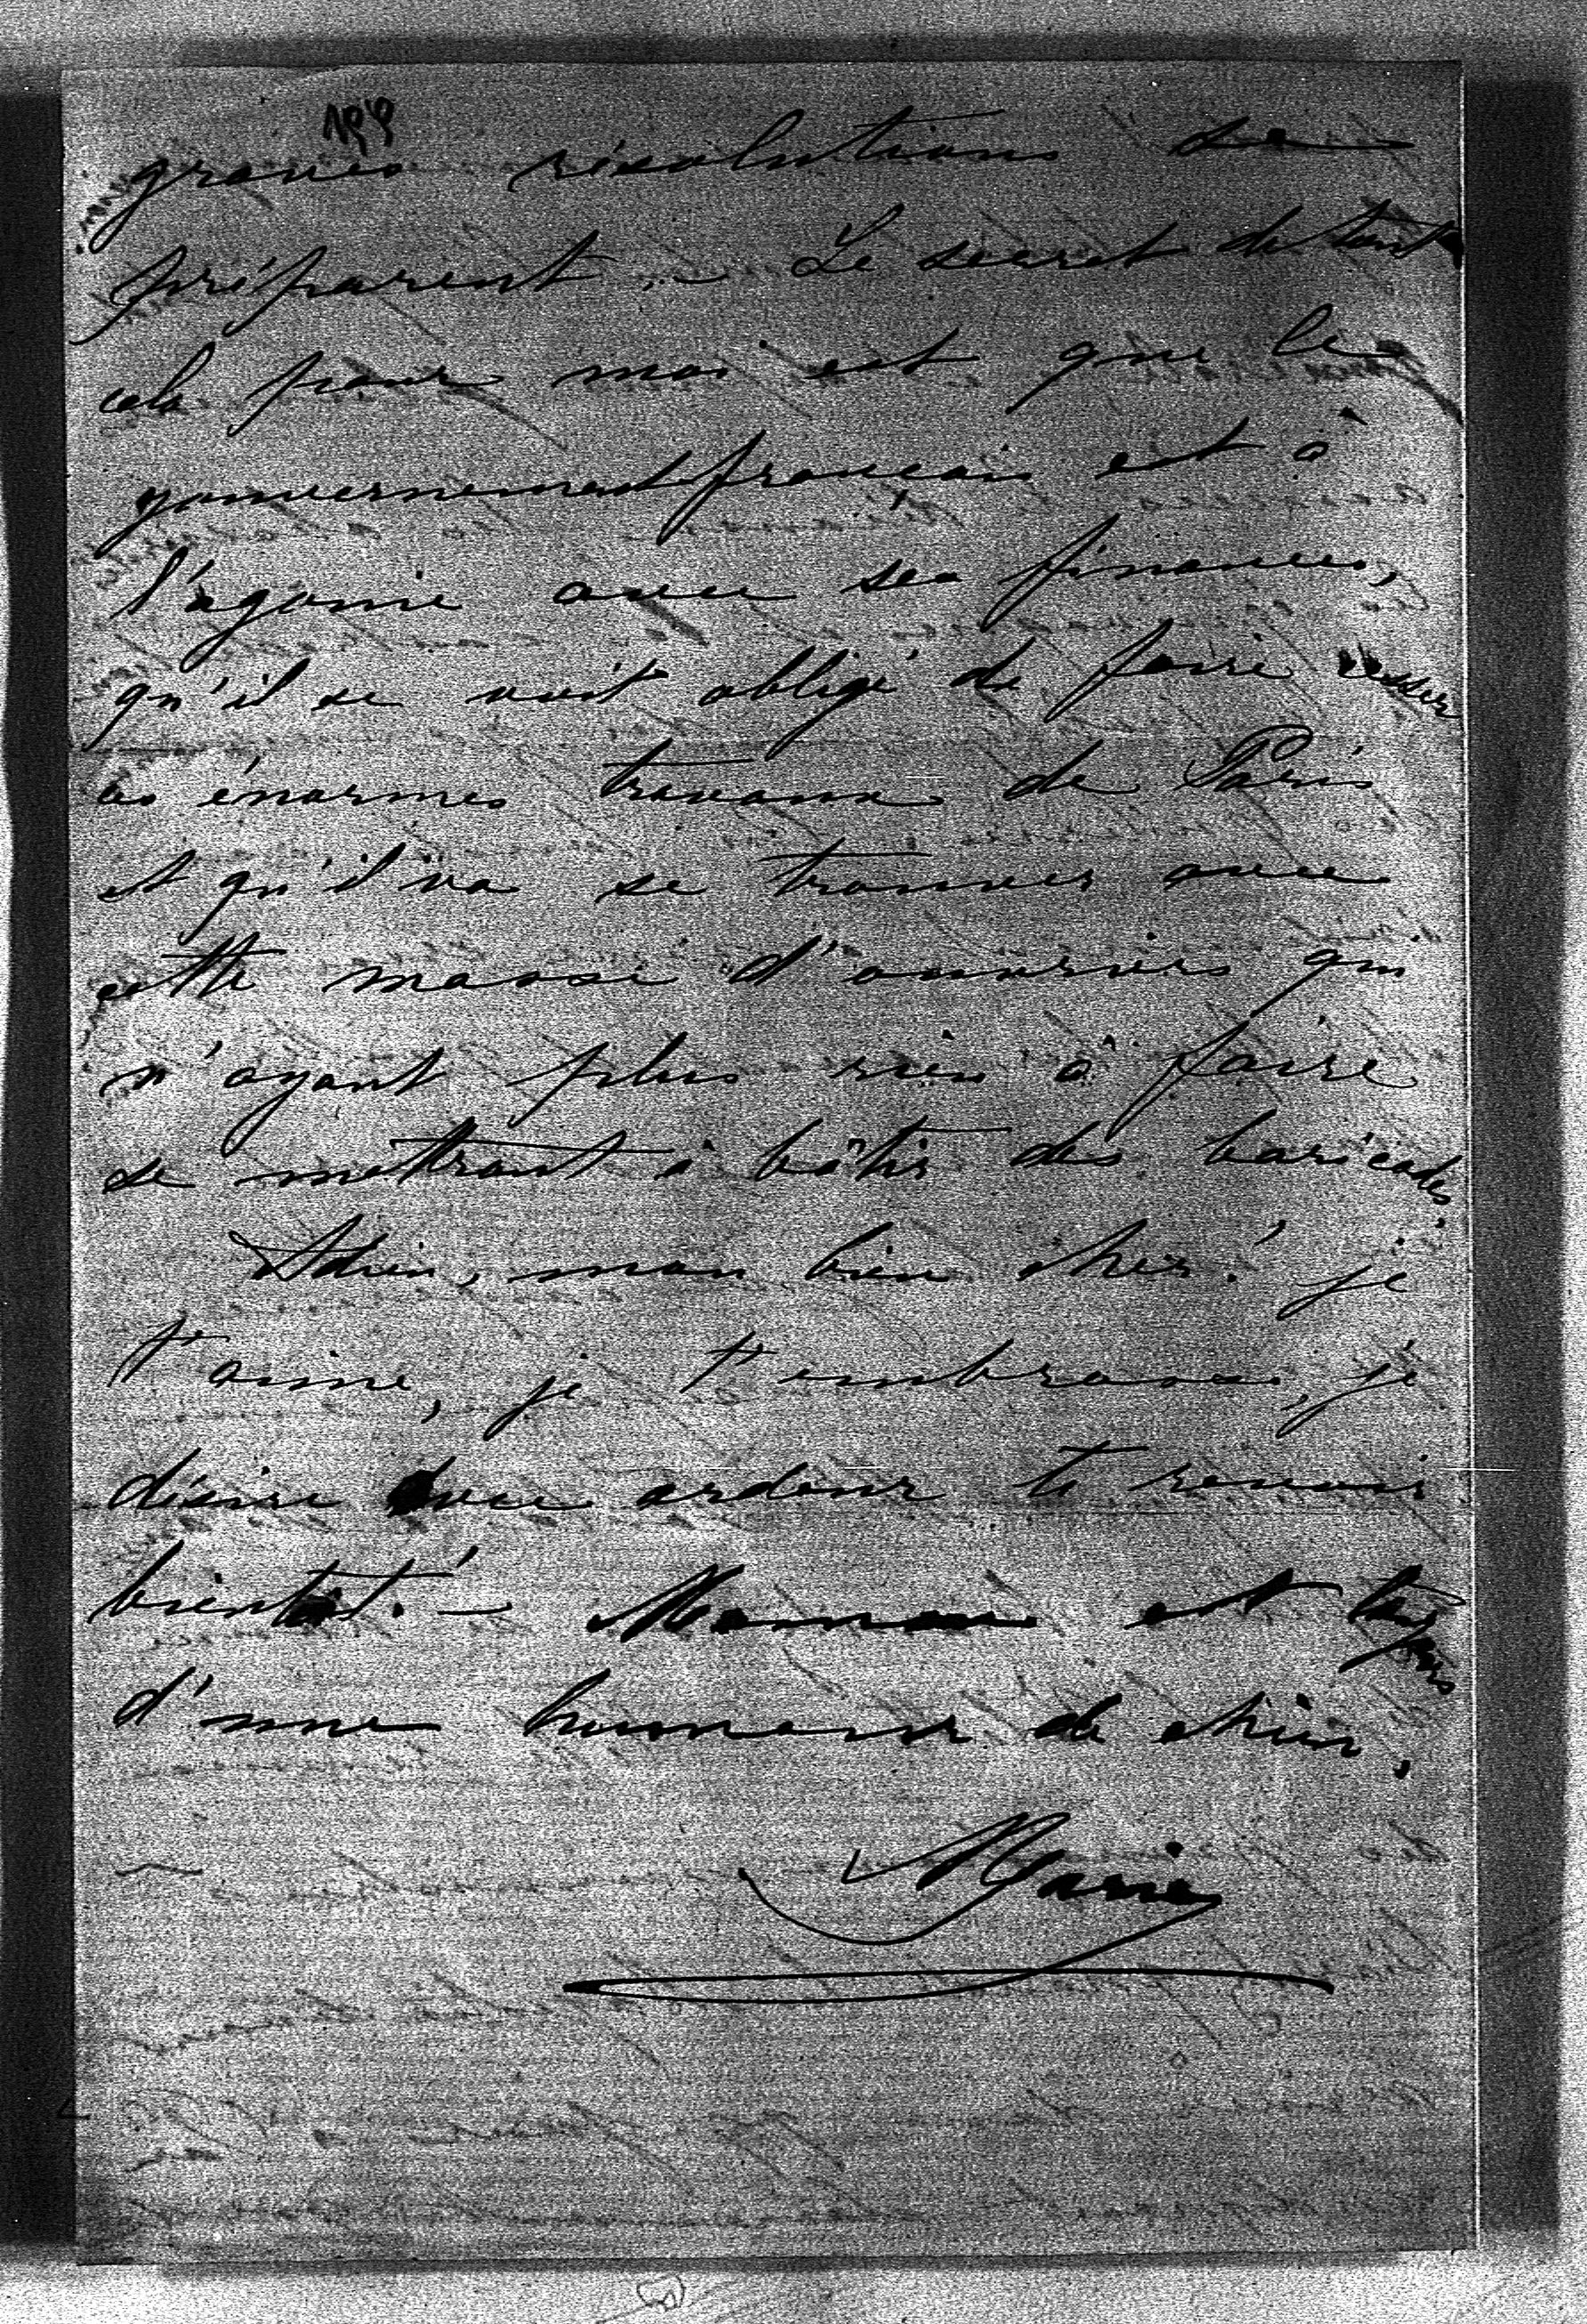 graves résolutions se
préparent. – Le secret de tout
cela pour moi est que le
gouvernement français est à
l'agonie avec ses finances,
qu'il se voit obligé de faire cesser
les énormes travaux de Paris
et qu'il va se trouver avec
cette masse d'ouvriers qui
n'ayant plus rien à faire
se mettront à bâtir des baricades.
Adieu, mon bien cher! je
t'aime, je t'embrasse, je
désire avec ardeur te revoir
bientôt. – Maman est toujours
d'une humeur de chien.
Marie